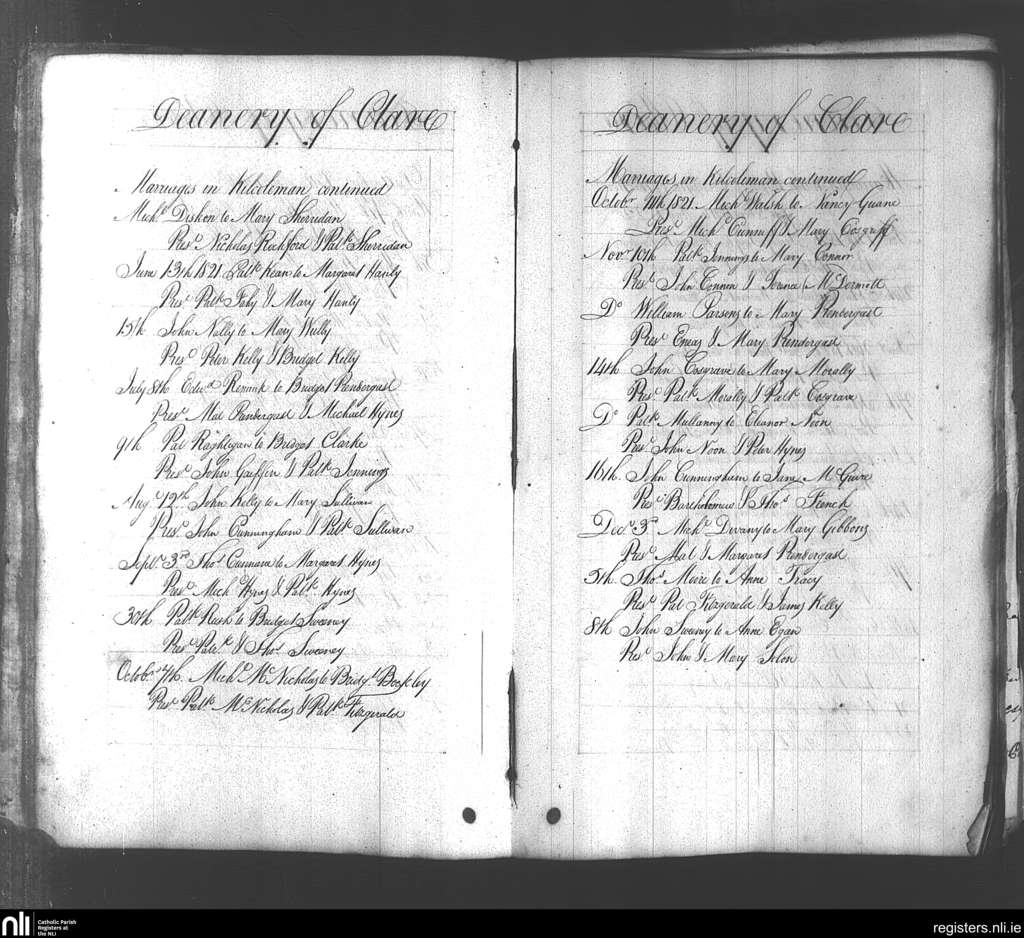 Deanery of Clare
Marriages in Kilcoleman continued
Mich.l Diskon to Mary Sherridan
Pres.t Nicholas Rochford & Pat.k Sherridan
June 13th 1821 Pat.k Kean to Margaret Hanly
Pres.t Pat.k Fahy & Mary Hanly
15th John Nally to Mary
Pres.t Peter Kelly & Bridget Kelly
July 8th Edw.d to Bridget Prenbergast
Pres.t Mat Prenbergast & Michael Hynes
9th Pat to Bridget Clarke
Pres.t John & Pat.k Jennings
Aug. 12th John Kelly to Mary Sullivan
Pres.t John Cunningham & Pat.k Sullivan
Sept.r 3rd Tho.s to Margaret Hynes
Pres.t Mich.l Hynes & Pat.k Hynes
30th Pat.k Rush to Bridget Sweeney
Pres.t Pat.k & Tho.s Sweeney
Octob.r 7th Mich.l McNicholas to Bridg.t
Pres.t Pat.k McNicholas & Pat.k Fitzgerald
Deanery of Clare
Marriages in Kilcoleman continued
Octob.r 1821 Mich.l Walsh to Nancy
Pres.t Mich.l Cunniff & Mary Cosgriff
Nov.r 10th Pat.k Jennings to Mary Connor
Pres.t John Connor & Terence McDermott
D.o William Parsons to Mary Prenbergast
Pres.t Eneas & Mary Prendergast
14th John Cosgrave to Mary Morally
Pres.t Pat.k Morally & Pat.k Cosgrave
D.o Pat.k Mullanny to Eleanor Noon
Pres.t John Noon & Peter Hynes
16th John Cunningham to Jane McGuire
Pres.t Bartholomew & Tho.s French
Dec.r 3rd Mich.l Devany to Mary Gibbons
Pres.t Mat & Margaret Prenbergast
5th Tho.s to Anne Tracy
Pres.t Pat Fitzgerald & James Kelly
8th John Sweeny to Anne Egan
Pres.t John & Mary Solon
nli
Catholic Parish
Registers at
the NLI
registers.nli.ie